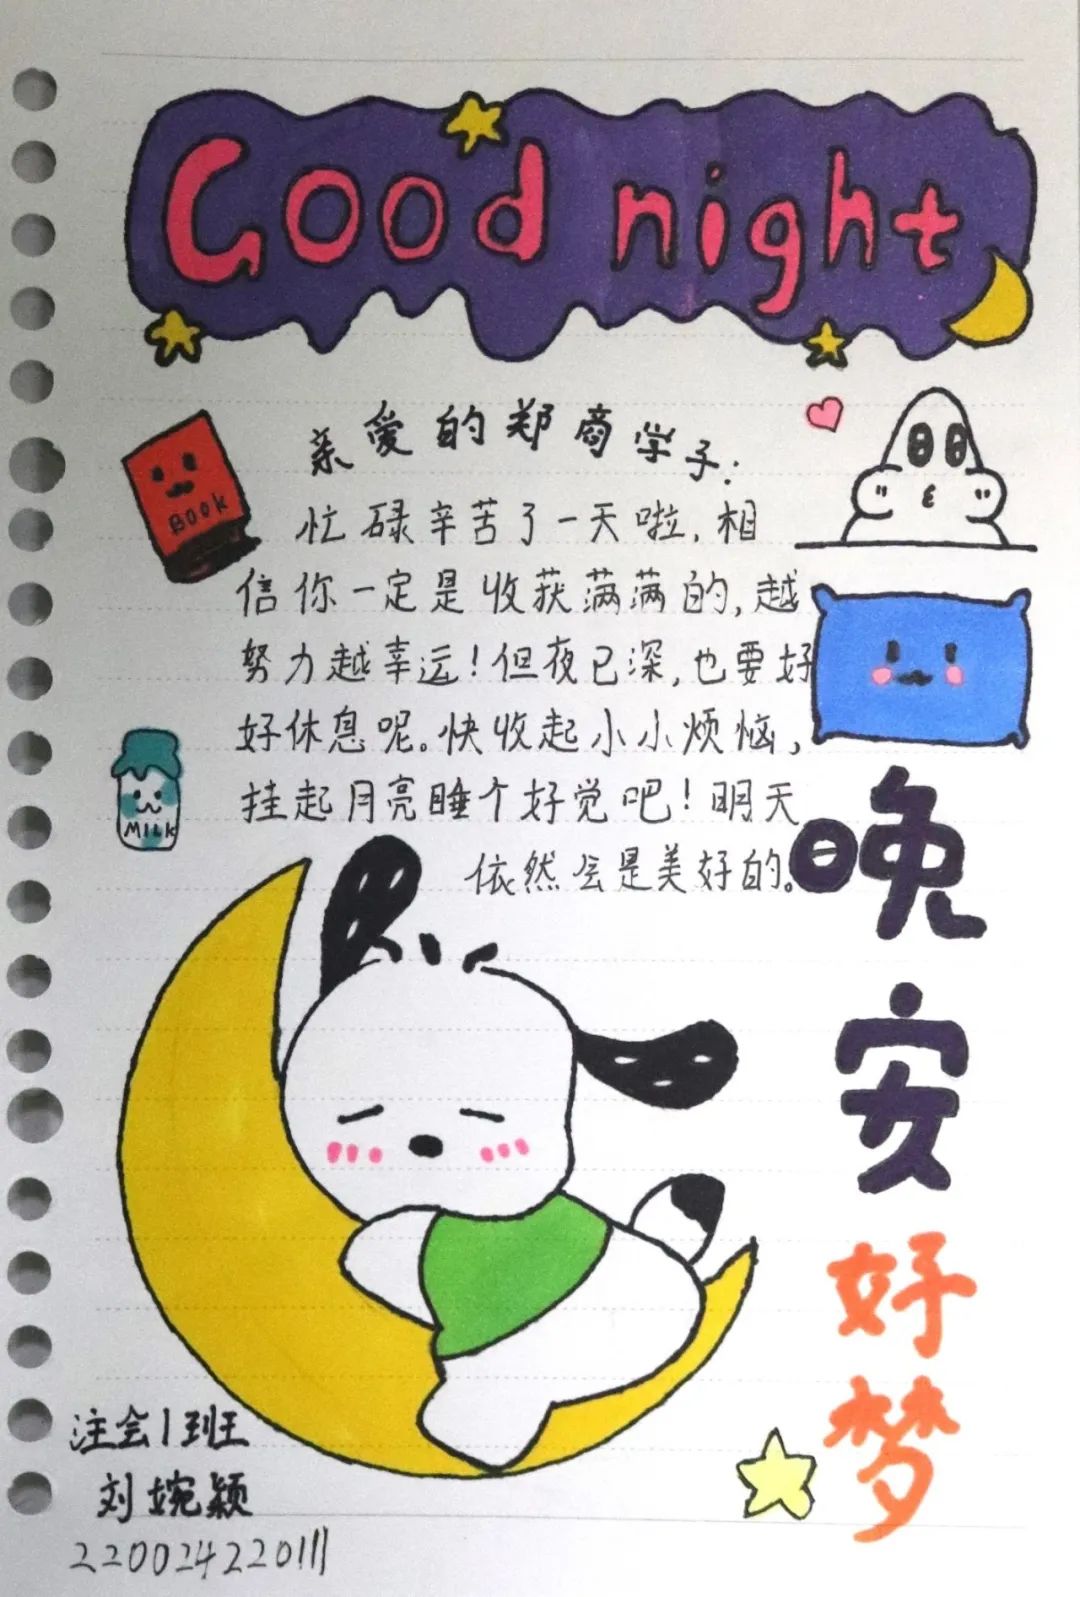 Good night
亲爱的郑商学子:
BOOK
忙碌辛苦了一天啦,相
信你一定是收获满满的,越
努力越幸运!但夜已深,也要好
好休息呢。快收起小小烦恼,
挂起月亮睡个好觉吧!明天
依然会是美好的。
MILK
晚安
好梦
注会1班
刘婉颖
220024220111